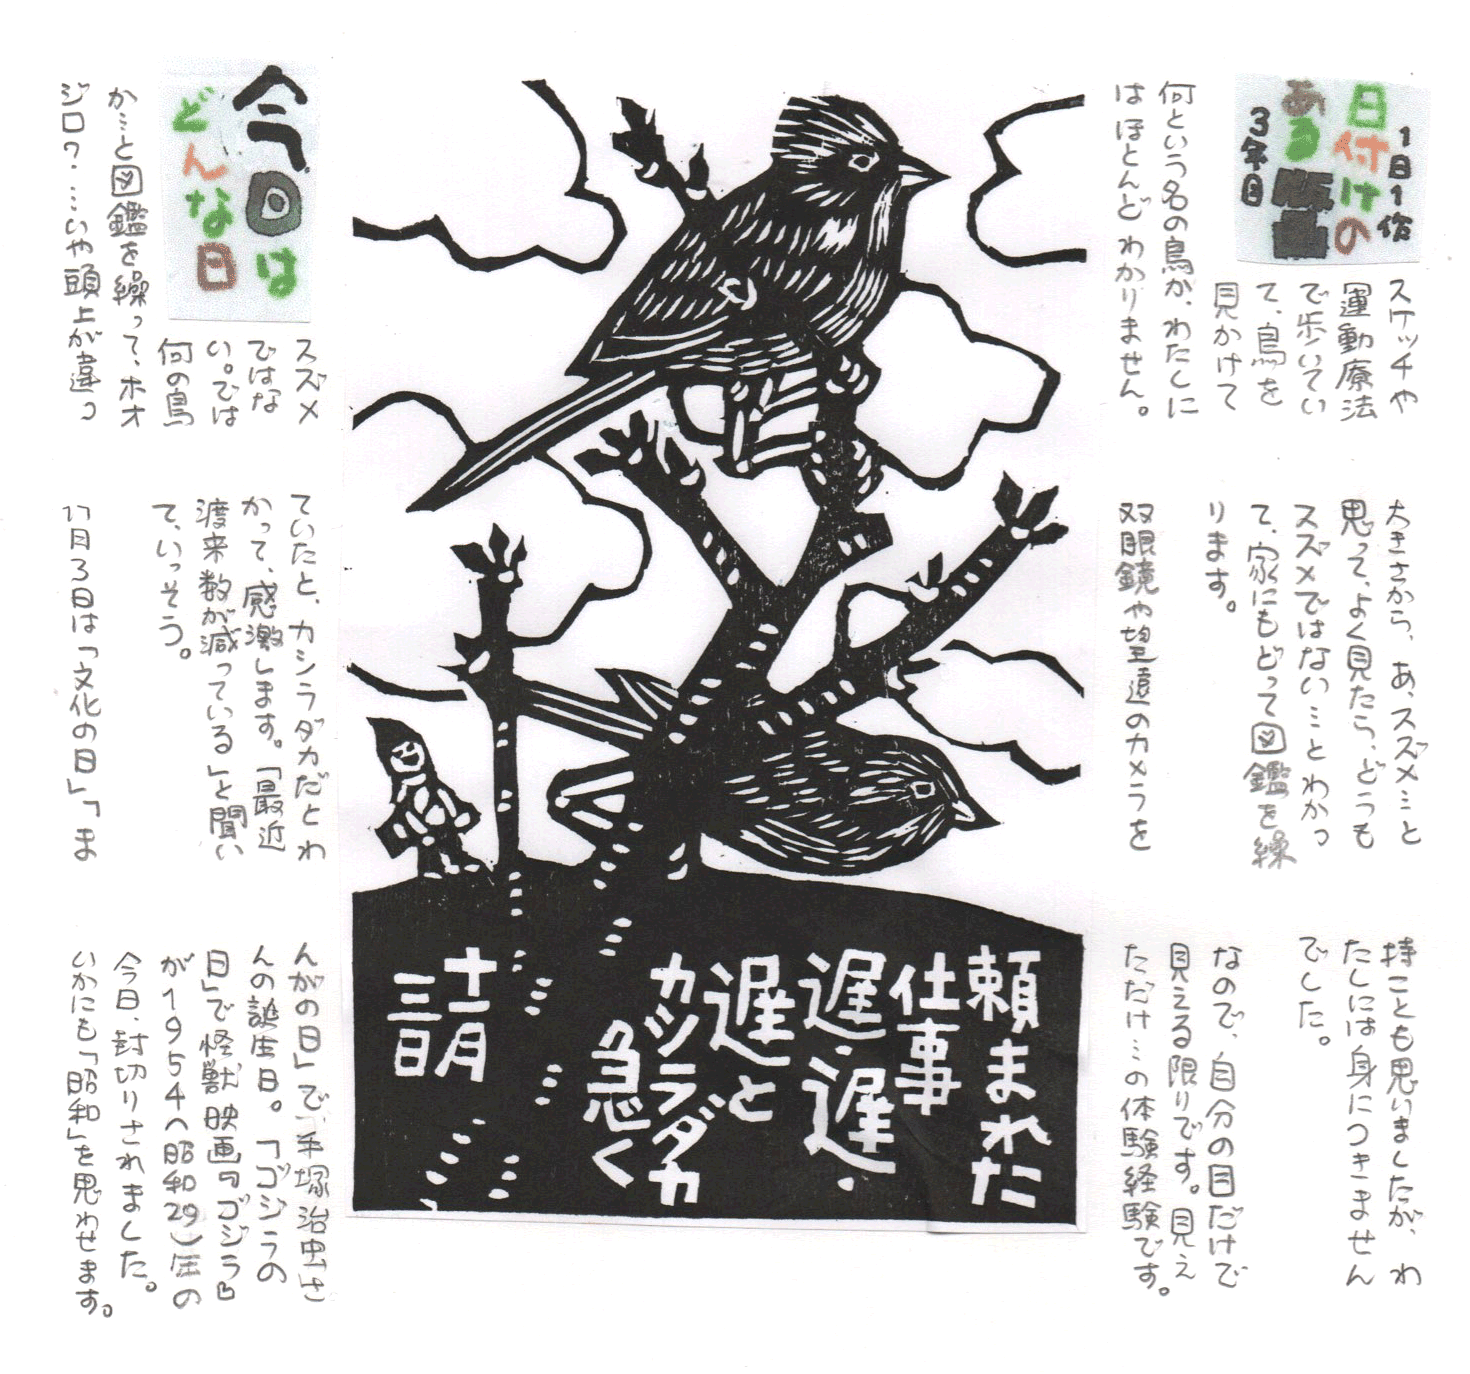 1日1作
日付けの
ある版画
3年目
スケッチや
運動療法
で歩いてい
て、鳥を
見かけて
何という名の鳥か、わたしに
はほとんどわかりません。
大きさから、あ、スズメ…と
思って、よく見たら、どうも
スズメではない…とわかっ
て、家にもどって図鑑を繰
ります。
双眼鏡や望遠のカメラを
持ことも思いましたが、わ
たしには身につきません
でした。
なので、自分の目だけで
見える限りです。見え
ただけ…の体験経験です。
頼まれた
仕事
遅・遅・
遅と
カツラダカ
急く
十一月
三日
今日は
どんな日
スズメ
ではな
い。では
何の鳥
か…と図鑑を繰って、ホオ
ジロ?…いや頭上が違っ
ていたと、カシラダカだとわ
かって、感激します。「最近
渡来数が減っている」と聞い
て、いっそう。
11月3日は「文化の日」「ま
んがの日」で、手塚治虫さ
んの誕生日。「ゴジラの
日」で怪獣映画『ゴジラ』
が1954(昭和29)年の
今日、封切りされました。
いかにも「昭和」を思わせます。